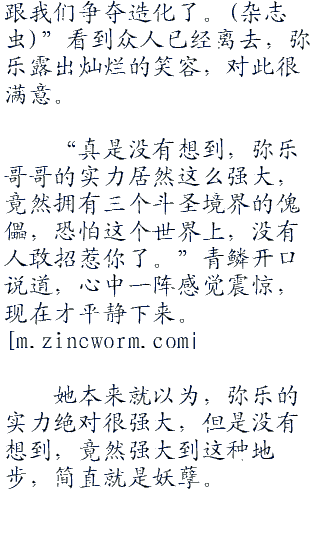 跟我们争夺造化了。(杂志
虫)”看到众人已经离去，弥
乐露出灿烂的笑容，对此很
满意。
“真是没有想到，弥乐
哥哥的实力居然这么强大，
竟然拥有三个斗圣境界的傀
儡，恐怕这个世界上，没有
人敢招惹你了。”青鳞开口
说道，心中一阵感觉震惊，
现在才平静下来。
[m.zincworm.com|
她本来就以为，弥乐的
实力绝对很强大，但是没有
想到，竟然强大到这种地
步，简直就是妖孽。